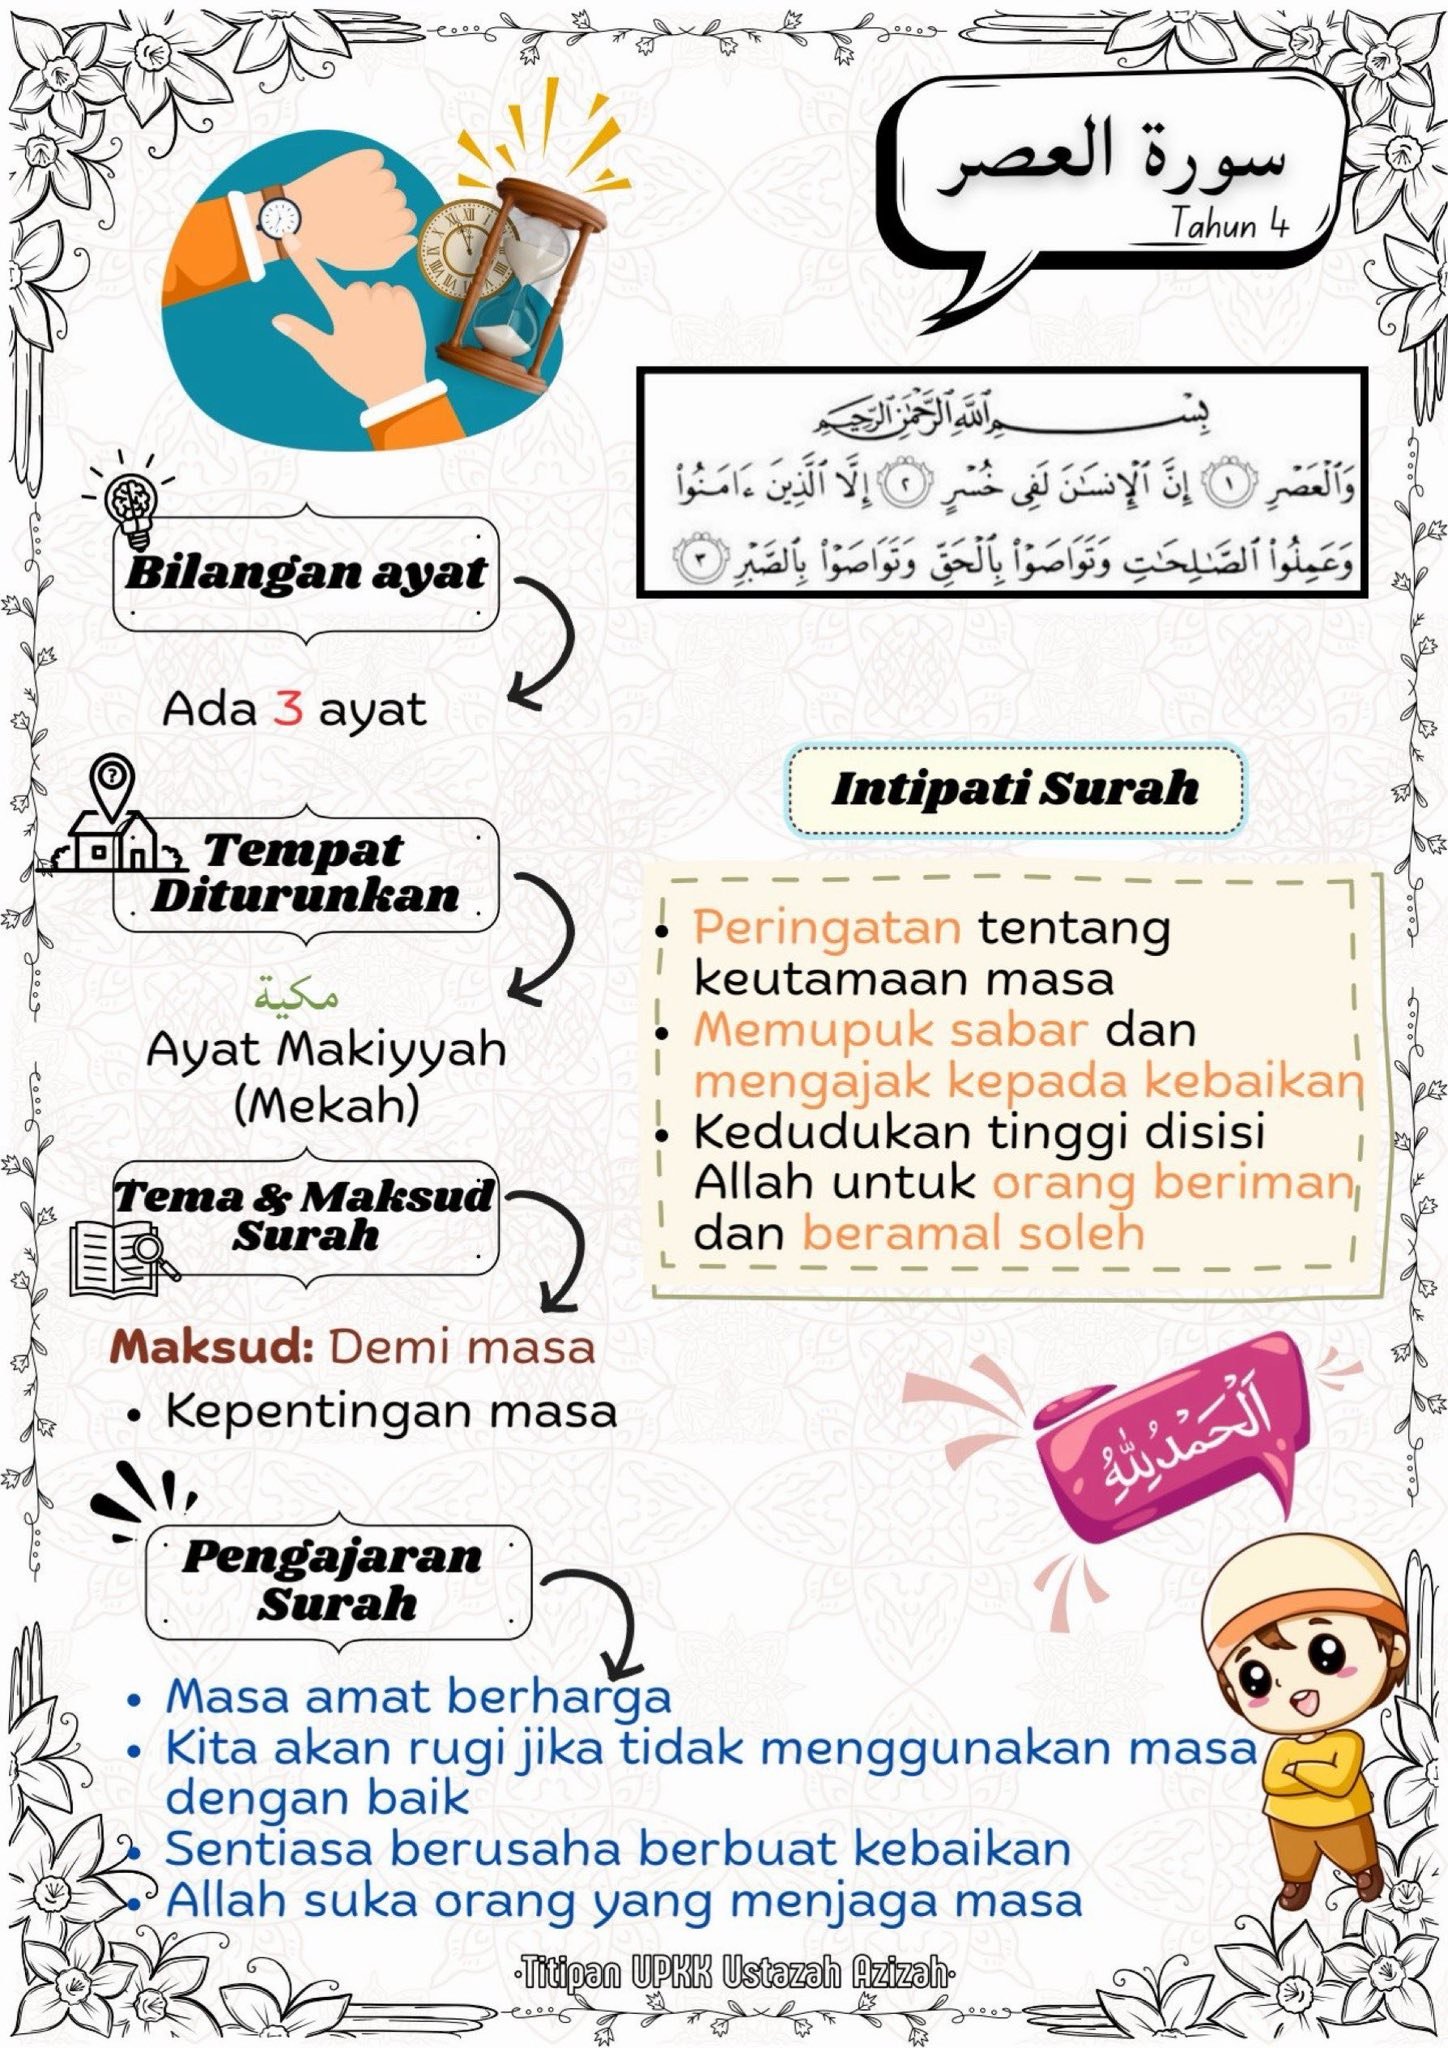 سورة العصر
Tahun 4
بِسْمِ ٱللَّهِ ٱلرَّحْمَٰنِ ٱلرَّحِيمِ
وَٱلْعَصْرِ ١ إِنَّ ٱلْإِنسَٰنَ لَفِى خُسْرٍ ٢ إِلَّا ٱلَّذِينَ ءَامَنُوا۟
وَعَمِلُوا۟ ٱلصَّٰلِحَٰتِ وَتَوَاصَوْا۟ بِٱلْحَقِّ وَتَوَاصَوْا۟ بِٱلصَّبْرِ ٣
Bilangan ayat
Ada 3 ayat
Tempat
Diturunkan
مكية
Ayat Makiyyah
(Mekah)
Tema & Maksud
Surah
Maksud: Demi masa
• Kepentingan masa
Intipati Surah
• Peringatan tentang
keutamaan masa
• Memupuk sabar dan
mengajak kepada kebaikan
• Kedudukan tinggi disisi
Allah untuk orang beriman
dan beramal soleh
اَلْحَمْدُ لِلّٰهِ
Pengajaran
Surah
• Masa amat berharga
• Kita akan rugi jika tidak menggunakan masa
dengan baik
• Sentiasa berusaha berbuat kebaikan
• Allah suka orang yang menjaga masa
•Titipan UPKK Ustazah Azizah•